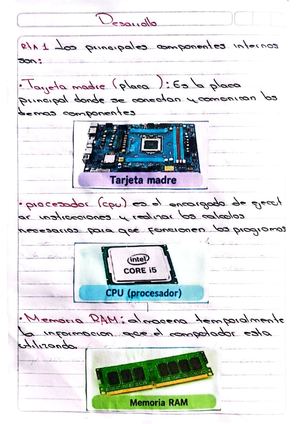 Desarrollo
R/A 1 Los principales componentes internos
son:
• Tarjeta madre (placa ): Es la placa
principal donde se conectan y comunican los
demas componentes
Tarjeta madre
• procesador (cpu) es el encargado de eject
ar instrucciones y realizar los calculos
necesarios para que funcionen los programas
intel
CORE i5
CPU (procesador)
• Memoria RAM: almacena temporalmente
la informacion que el computador esta
utilizando
Memoria RAM